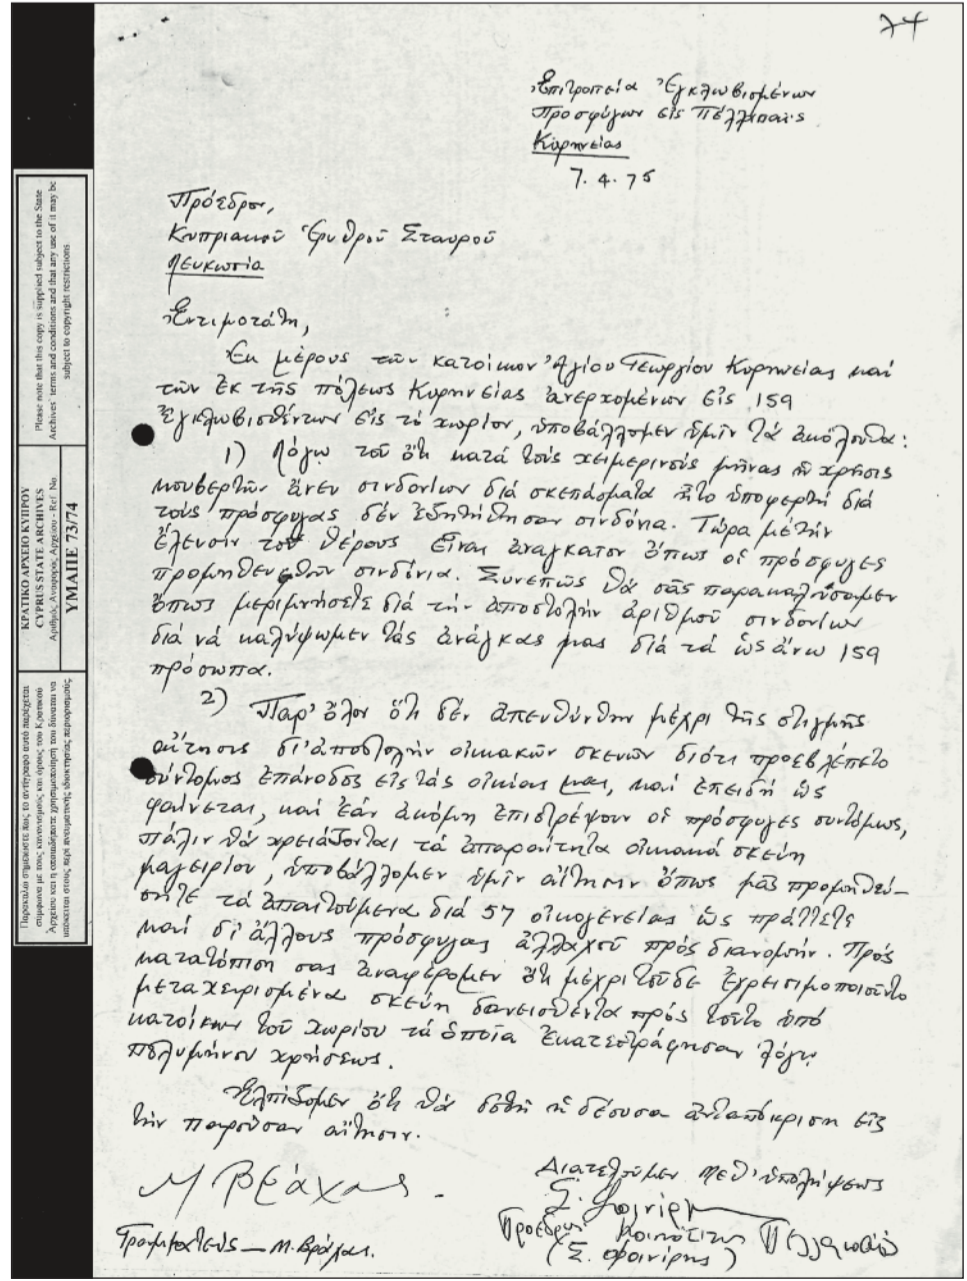 74
Ἐπιτροπεία Ἐγκλωβισμένων
Προσφύγων εἰς Πέλλαπαϊς
Κυρηνείας
7.4.75
Πρόεδρον,
Κυπριακοῦ Ἐρυθροῦ Σταυροῦ
Λευκωσία
Ἐντιμοτάτη,
Ἐκ μέρους τῶν κατοίκων Ἁγίου Γεωργίου Κυρηνείας καί
τῶν ἐκ τῆς πόλεως Κυρηνείας ἀνερχομένων εἰς 159
ἐγκλωβισθέντων εἰς τό χωρίον, ὑποβάλλομεν ὑμῖν τά ἀκόλουθα:
1) Λόγῳ τοῦ ὅτι κατά τούς χειμερινούς μῆνας ἡ χρῆσις
κουβερτῶν ἄνευ σινδονίων διά σκεπάσματα ἦτο ὑποφερτή διά
τούς πρόσφυγας δέν ἐζητήθησαν σινδόνια. Τώρα μέ τήν
ἔλευσιν τοῦ θέρους εἶναι ἀναγκαῖον ὅπως οἱ πρόσφυγες
προμηθευθῶν σινδόνια. Συνεπῶς θά σᾶς παρακαλούσαμεν
ὅπως μεριμνήσετε διά τήν ἀποστολήν ἀριθμοῦ σινδονίων
διά νά καλύψωμεν τάς ἀνάγκας μας διά τά ὡς ἄνω 159
πρόσωπα.
2) Παρ' ὅλον ὅτι δέν ἀπευθύνθην μέχρι τῆς στιγμῆς
αἴτησις δι' ἀποστολήν οἰκιακῶν σκευῶν διότι προεβλέπετο
σύντομος ἐπάνοδος εἰς τάς οἰκίας μας, καί ἐπειδή ὡς
φαίνεται, καί ἐάν ἀκόμη ἐπιστρέψουν οἱ πρόσφυγες συντόμως,
πάλιν θά χρειάζονται τά ἀπαραίτητα οἰκιακά σκεύη
μαγειρίου, ὑποβάλλομεν ὑμῖν αἴτησιν ὅπως μᾶς προμηθεύ-
σητε τά ἀπαιτούμενα διά 57 οἰκογενείας ὡς πράττετε
καί δι' ἄλλους πρόσφυγας ἀλλαχοῦ πρός διανομήν. Πρός
κατατόπιση σας ἀναφέρομεν ὅτι μέχρι τοῦδε ἐχρεισιμοποιοῦντο
μεταχειρισμένα σκεύη δανεισθέντα πρός τοῦτο ὑπό
κατοίκων τοῦ χωρίου τά ὁποῖα ἐκατεστράφησαν λόγῳ
πολυμήνου χρήσεως.
Ἐλπίζομεν ὅτι θά δοθῇ ἡ δέουσα ἀνταπόκριση εἰς
τήν παροῦσαν αἴτησιν.
Διατελοῦμεν μεθ' ὑπολήψεως
Μ Βράχας.
Πρόεδρος Κοινότητος Πέλλαπαϊς
Γραμματεύς — Μ. Βράχας.
(Σ. Φοινίρης)
Please note that this copy is supplied subject to the State
Archives' terms and conditions and that any use of it may be
subject to copyright restrictions
ΚΡΑΤΙΚΟ ΑΡΧΕΙΟ ΚΥΠΡΟΥ
CYPRUS STATE ARCHIVES
Αριθμός Αναφοράς Αρχείου - Ref No.
ΥΜΑΠΕ 73/74
Παρακαλώ σημειώστε πως το αντίγραφο αυτό παρέχεται
σύμφωνα με τους κανονισμούς και όρους του Κρατικού
Αρχείου και η οποιαδήποτε χρησιμοποίησή του δύναται να
υπόκειται στους περί πνευματικής ιδιοκτησίας περιορισμούς